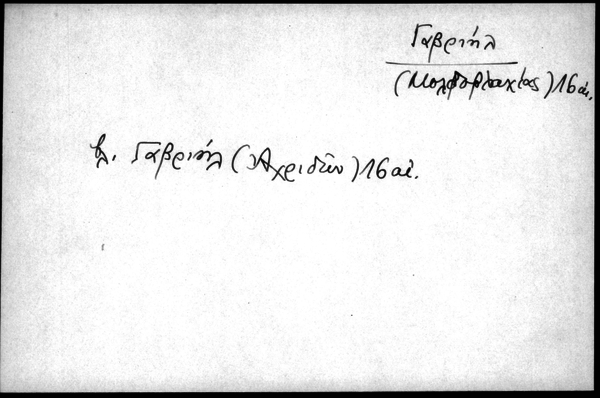 Γαβριήλ
(Μολδοβλαχίας) 16 αἰ.
βλ. Γαβριήλ (Ἀχριδῶν) 16 αἰ.